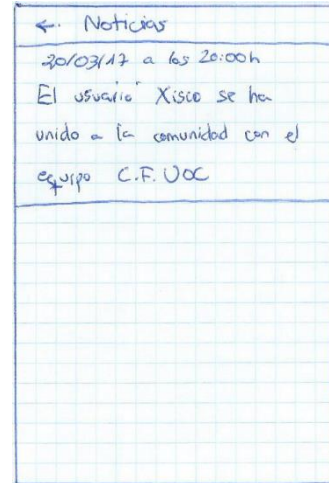 ←. Noticias
20/03/17 a las 20:00h
El usuario Xisco se ha
unido a la comunidad con el
equipo C.F. UOC